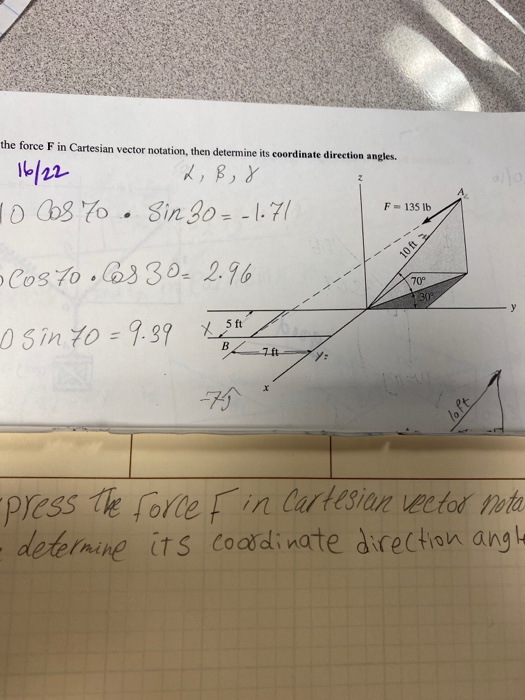 the force F in Cartesian vector notation, then determine its coordinate direction angles.
16/22
α, β, γ
z
10 Cos 70 . Sin 30 = -1.71
F = 135 lb
A
10 ft
Cos 70 . Cos 30 = 2.96
70°
30°
y
0 Sin 70 = 9.39
X
5 ft
B
7 ft
y:
x
-7ĵ
10ft
press the force F in Cartesian vector nota
determine its coordinate direction angle